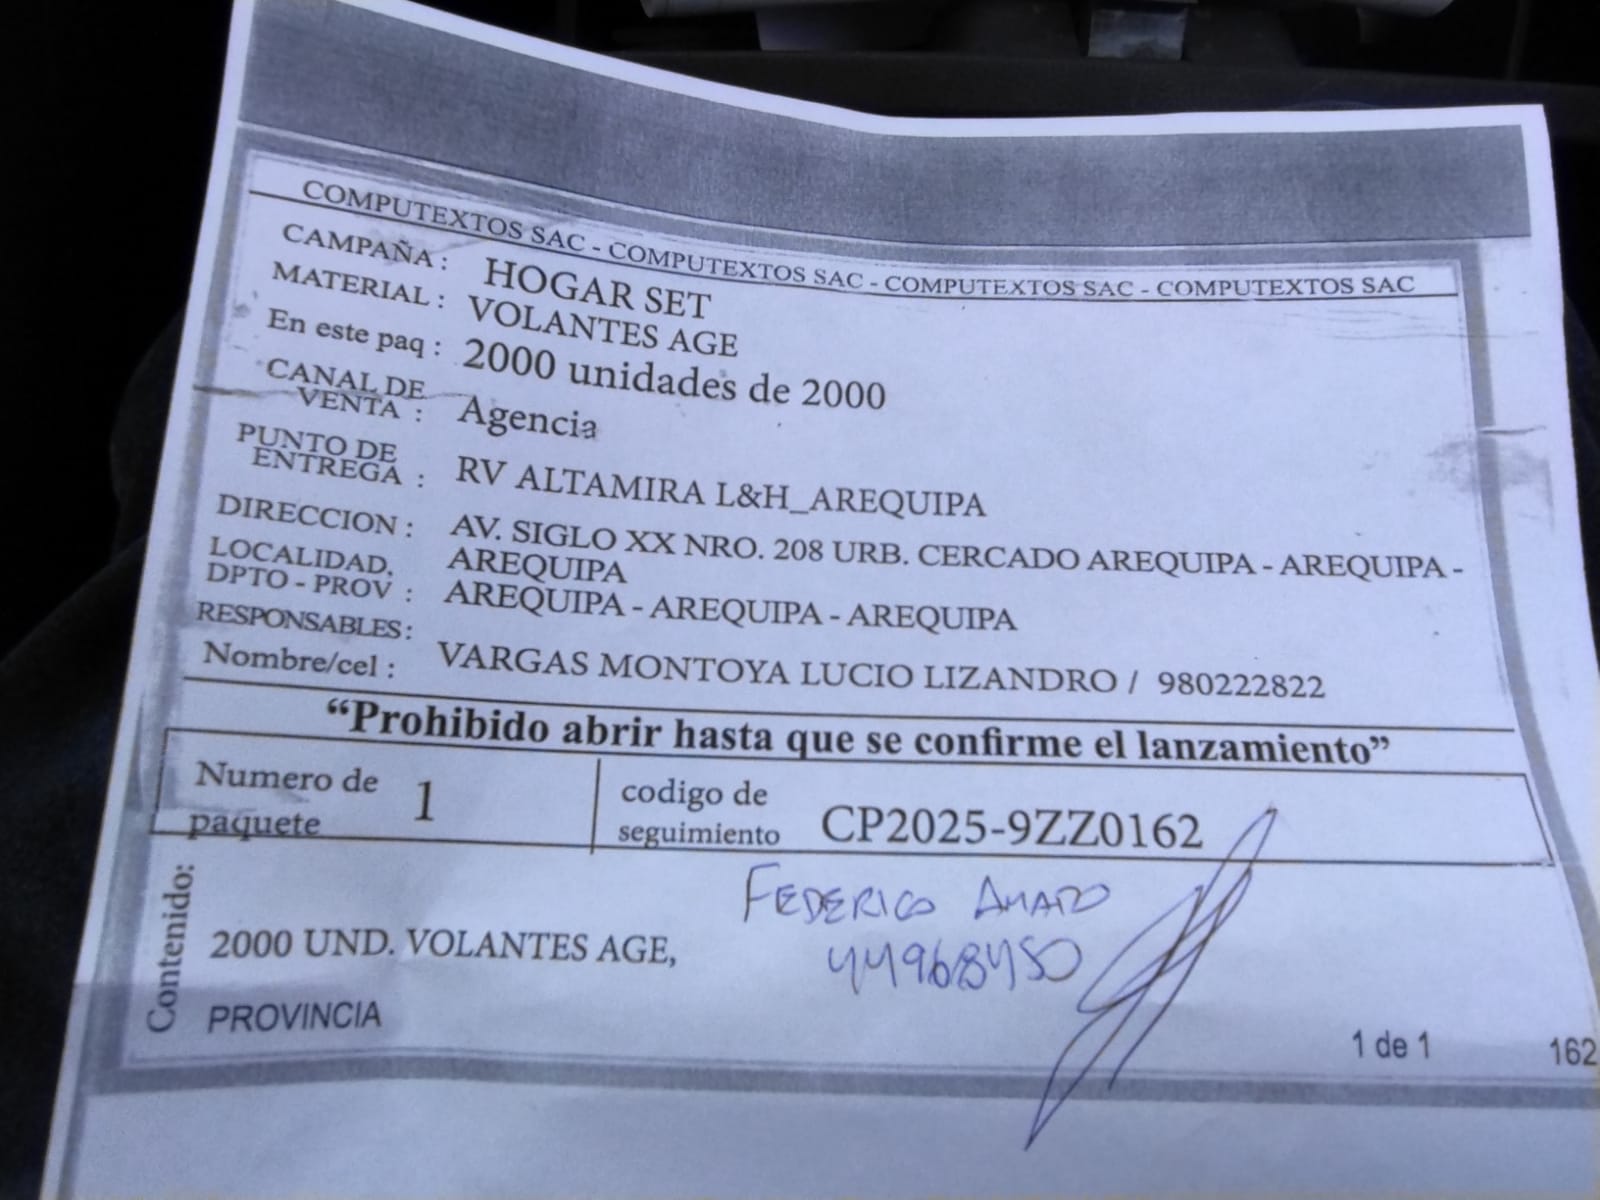 COMPUTEXTOS SAC - COMPUTEXTOS SAC - COMPUTEXTOS SAC - COMPUTEXTOS SAC
CAMPAÑA : HOGAR SET
MATERIAL : VOLANTES AGE
En este paq : 2000 unidades de 2000
CANAL DE VENTA : Agencia
PUNTO DE ENTREGA : RV ALTAMIRA L&H_AREQUIPA
DIRECCION : AV. SIGLO XX NRO. 208 URB. CERCADO AREQUIPA - AREQUIPA -
AREQUIPA
LOCALIDAD, DPTO - PROV : AREQUIPA - AREQUIPA - AREQUIPA
RESPONSABLES:
Nombre/cel : VARGAS MONTOYA LUCIO LIZANDRO / 980222822
“Prohibido abrir hasta que se confirme el lanzamiento”
Numero de paquete 1
codigo de seguimiento CP2025-9ZZ0162
Contenido:
2000 UND. VOLANTES AGE,
PROVINCIA
FEDERICO AMADO
44968450
1 de 1
162